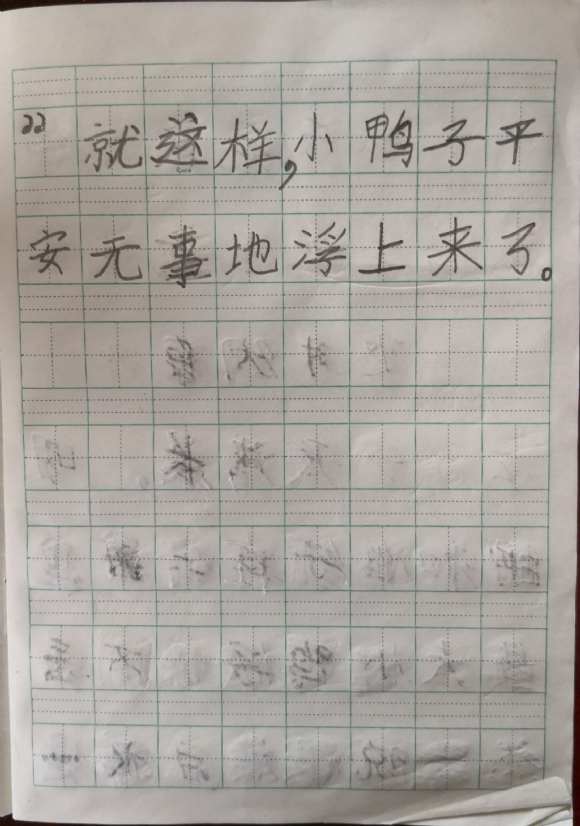 ” 就这样,小鸭子平
安无事地浮上来了。